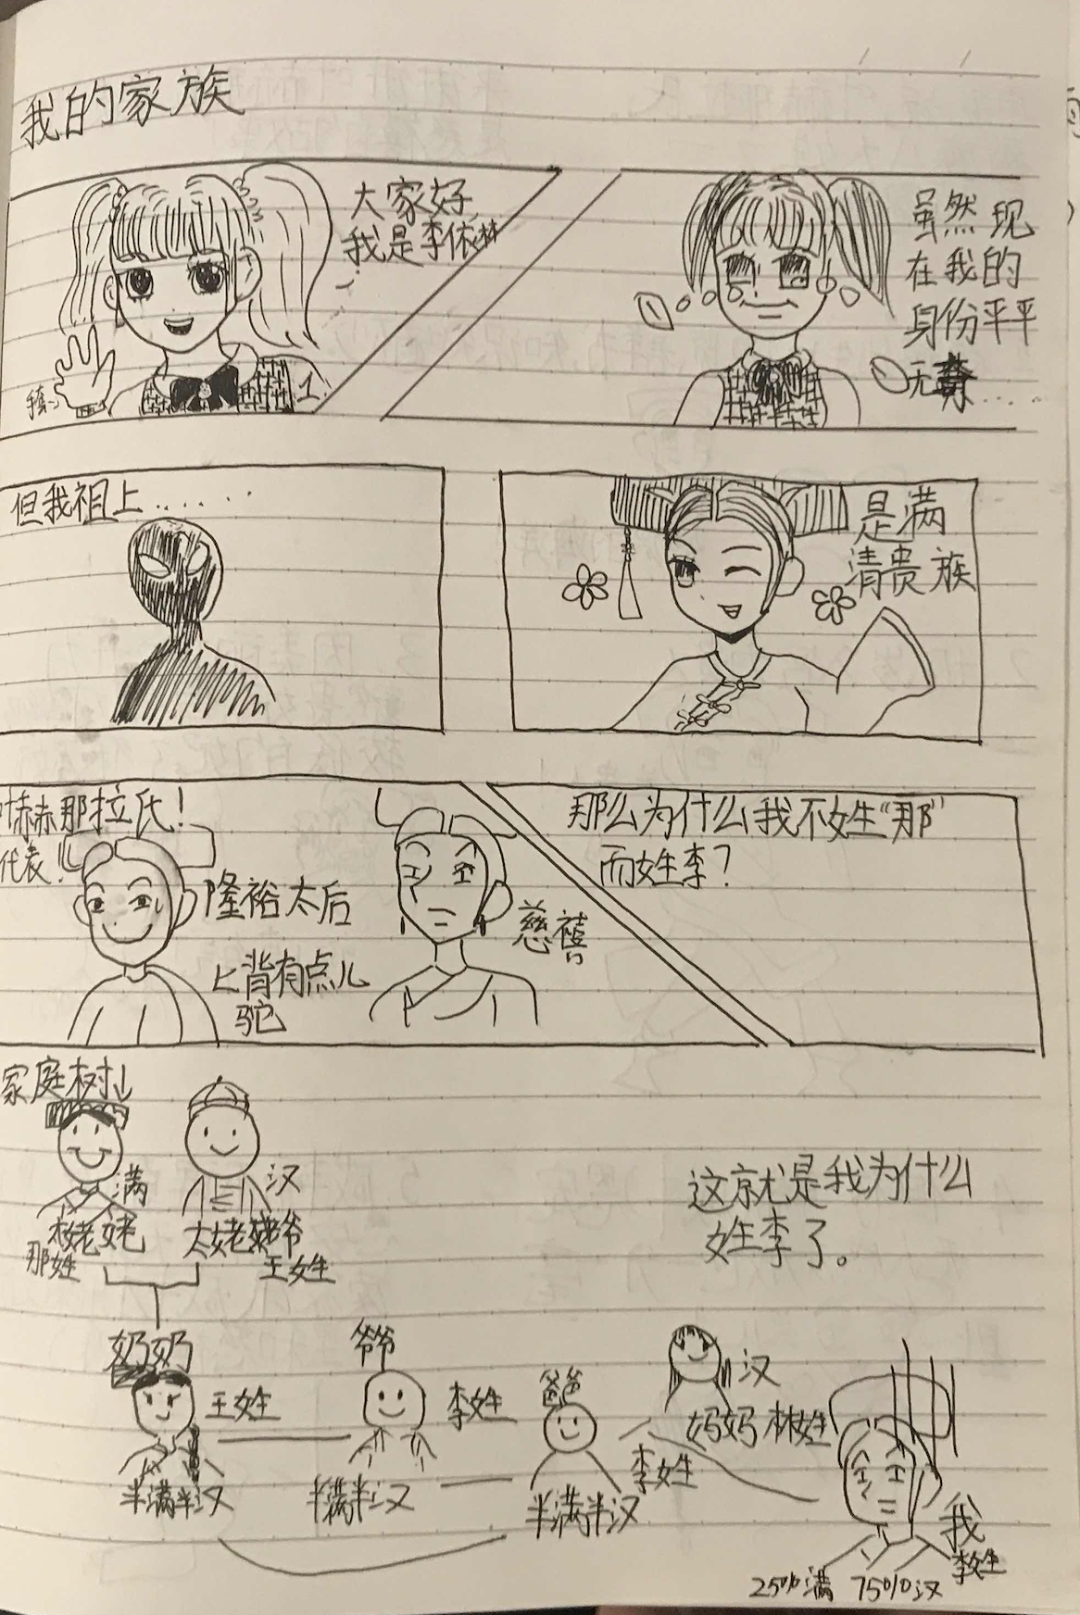 我的家族
大家好
我是李依林
虽然现
在我的
身份平平
无奇......
但我祖上......
是满
清贵族
赫那拉氏!
代表!!
隆裕太后
背有点儿
驼
慈禧
那么为什么我不姓“那”
而姓李?
家庭树↓
满
汉
太姥姥
太姥姥爷
那姓
王姓
这就是我为什么
姓李了。
奶奶
王姓
半满半汉
爷爷
李姓
半满半汉
爸爸
李姓
半满半汉
汉
妈妈 林姓
我
李姓
25%满 75%汉